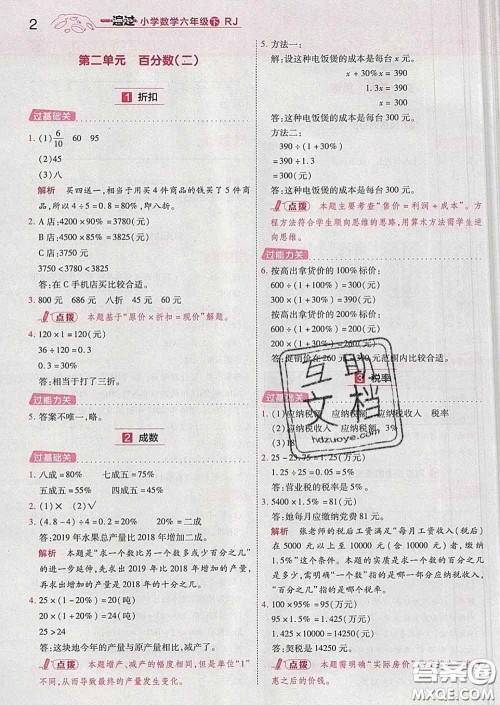 2
一遍过 小学数学六年级 下 RJ
第二单元 百分数(二)
1 折扣
过基础关
1. (1) 6/10 60 95
(2)45
(3)八
解析 买四送一,相当于用买4件商品的钱买了5件商
品,所以4÷5=0.8=80%,即八折。
2. A店:4200×90%=3780(元)
B店:3850<4200
3750<3780<3850
答:在C手机店买比较合适。
3. 800元 686元 八折 45元 60元
点拨 本题基于“原价×折扣=现价”解题。
4. 120×1=120(元)
36÷120=0.3
0.3=30%
答:相当于打三折。
过能力关
5. 答案不唯一,略。
2 成数
过基础关
1. 八成=80% 七成五=75%
五成五=55% 四成五=45%
2. (1)× (2)√
3. (4.8-4)÷4=0.2=20% 20%=二成
答:2019年水果总产量比2018年增加二成。
解析 本题是“求一个数比另一个数多或少百分之几”
的实际问题,先求出2019年比2018年增加的产量,
再求出增加的产量是2018年的十分之几。
4. 25×(1-20%)=20(吨)
20×(1+20%)=24(吨)
25>24
答:这块地今年的产量与原产量相比,减产了。
点拨 本题增产、减产的百分率相同,但单位“1”
不同,从而导致最终的产量发生变化。
5. 方法一:
解:设这种电饭煲的成本是每台x元。
x+30%x=390
1.3x=390
x=300
答:这种电饭煲的成本是每台300元。
方法二:
390÷(1+30%)=300(元)
答:这种电饭煲的成本是每台300元。
点拨 本题主要考查“售价=利润+成本”。方
程方法符合学生顺向思维的思路,用算术方法需学生逆
向思维。
过能力关
6. 按高出拿货价的100%标价:
600÷(1+100%)=300(元)
300×(1+30%)=390(元)
按高出拿货价的200%标价:
600÷(1+200%)=200(元)
200×(1+30%)=260(元)
答:
元范围内比较合适。
3 税率
过基础关
1. (1)应纳税额
应纳税收入 税率
(3)18
2. 25-23.75=1.25(万元)
1.25÷25=0.05=5%
答:营业税的税率是5%。
3. 5400×1.5%=81(元)
答:她每月应缴纳党费81元。
解析 张老师的税后工资满足“每月工资收入(税后)
在5000元以上至10000元(含10000元)者,缴纳
1.5%”这个条件。本题是“求一个数的百分之几是多
少”,需明确“一个数”指的是哪一部分应纳税收入,
“百分之几”是指对应的税率。
4. 100×95%=95(万元)
95×1.5%=1.425(万元)
1.425×10000=14250(元)
答:契税是14250元。
点拨 本题需明确“实际房价
惠之后的价钱。
互助
文档
hdzuoye.com
答案圈
MXQE.COM